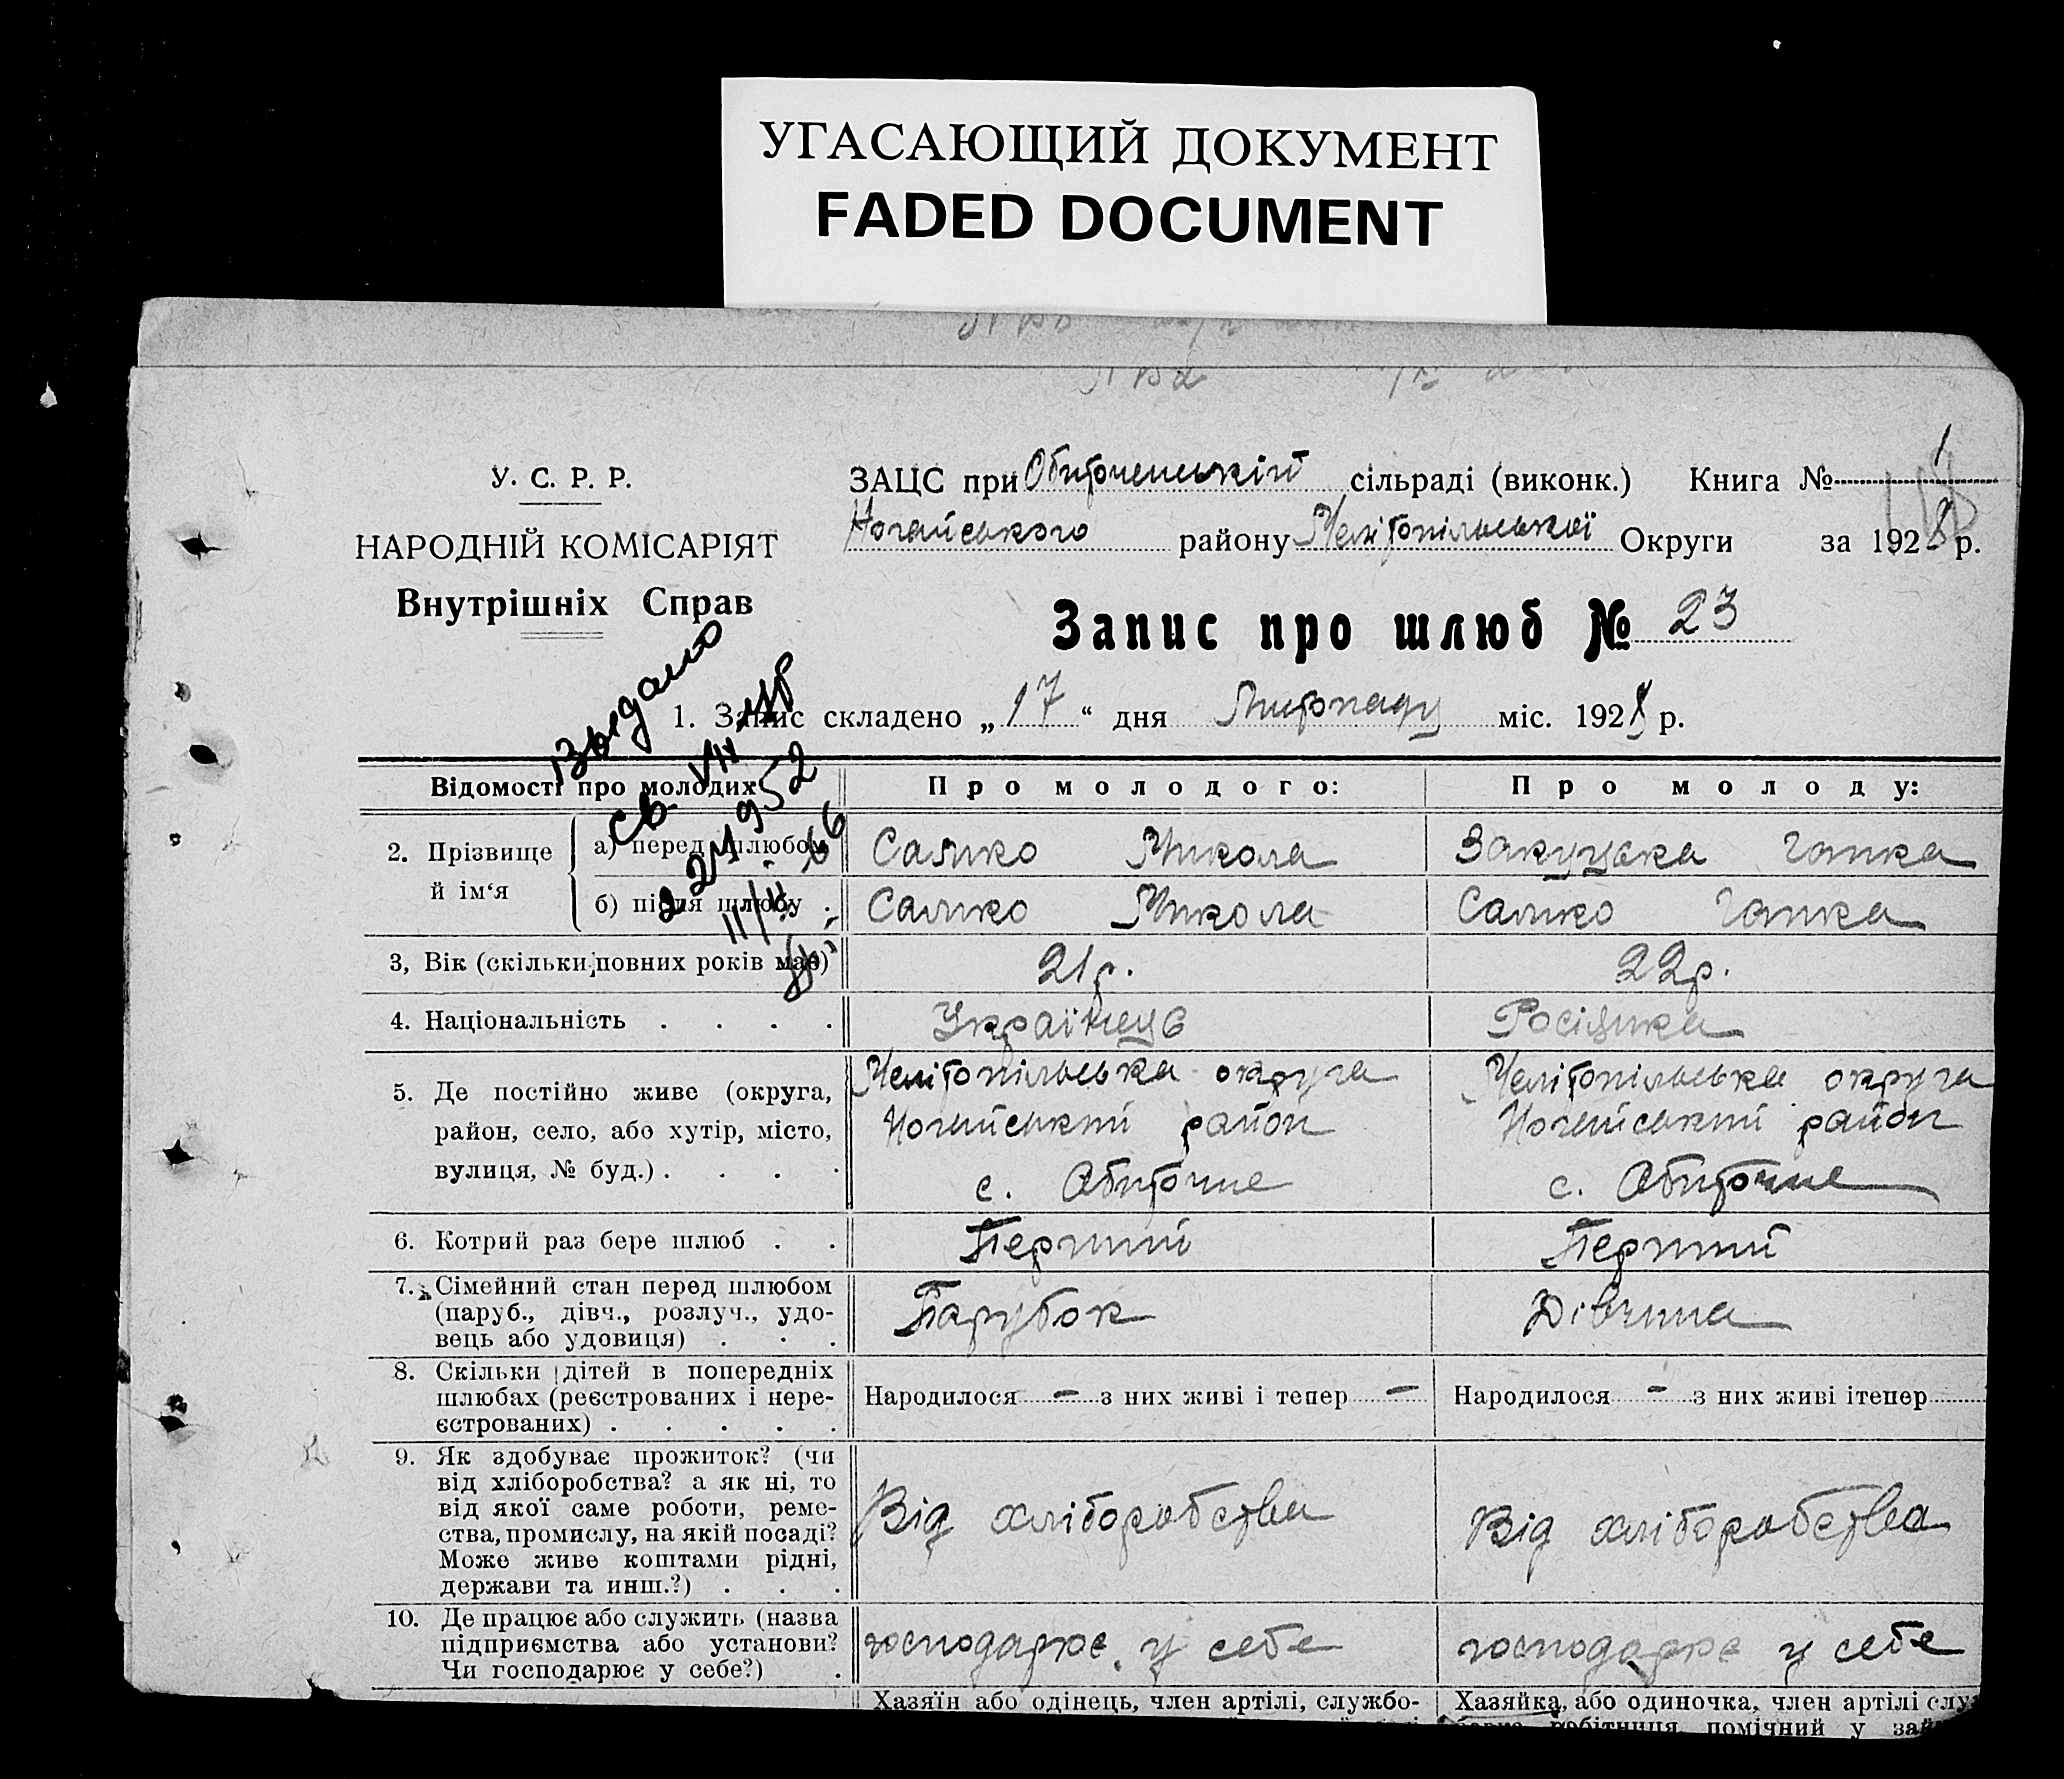 УГАСАЮЩИЙ ДОКУМЕНТ
FADED DOCUMENT
У. С. Р. Р.
НАРОДНІЙ КОМІСАРІЯТ
Внутрішніх Справ
ЗАЦС при Обиточенській сільраді (виконк.) Книга № 1
Ногайського району Мелітопільської Округи за 1928 р.
Запис про шлюб № 23
1. Запис складено „ 17 “ дня Листопаду міс. 1928 р.
Видано
св
Відомості про молодих
Про молодого:
Про молоду:
2. Прізвище й ім‘я
а) перед шлюбом
Салико Микола
Закуцька Гапка
б) після шлюбу
Салико Микола
Салико Гапка
3, Вік (скільки повних років має)
21 р.
22 р.
4. Національність . . . .
Українець
Росіянка
5. Де постійно живе (округа,
район, село, або хутір, місто,
вулиця, № буд.) . . . .
Мелітопільська округа
Ногайський район
с. Обиточне
Мелітопільська округа
Ногайський район
с. Обиточне
6. Котрий раз бере шлюб . .
Перший
Перший
7. Сімейний стан перед шлюбом
(паруб., дівч., розлуч., удо-
вець або удовиця) . . .
Парубок
Дівчина
8. Скільки дітей в попередніх
шлюбах (реєстрованих і нере-
єстрованих) . . . . .
Народилося — з них живі і тепер —
Народилося - з них живі ітепер
9. Як здобуває прожиток? (чи
від хліборобства? а як ні, то
від якої саме роботи, реме-
ства, промислу, на якій посаді?
Може живе коштами рідні,
держави та инш.?) . . .
Від хліборобства
Від хліборобства
10. Де працює або служить (назва
підприємства або установи?
Чи господарює у себе?) .
господарює у себе
господарює у себе
Хазяїн або одінець, член артілі, службо-
Хазяйка, або одиночка, член артілі слу
робітниця помічний у зай